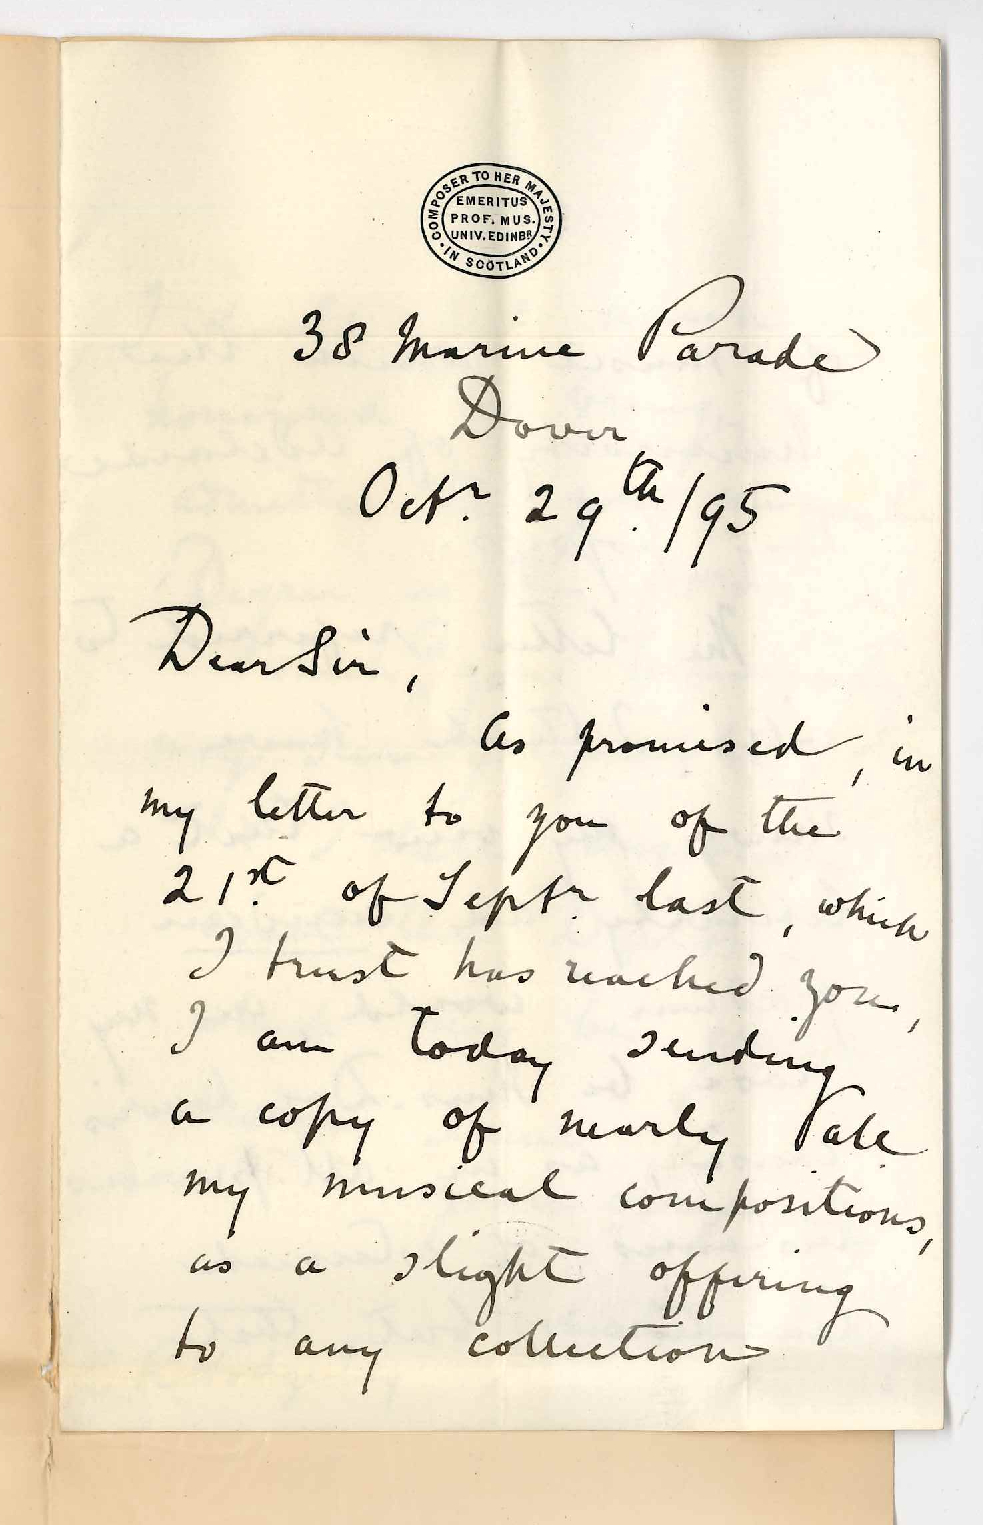 COMPOSER TO HER MAJESTY
IN SCOTLAND
EMERITUS
PROF. MUS.
UNIV. EDINBR
38 Marine Parade
Dover
Octr. 29th./95
Dear Sir,
As promised, in
my letter to you of the
21st. of Septr. last, which
I trust has reached you,
I am today sending
a copy of nearly all
my musical compositions,
as a slight offering
to any collection